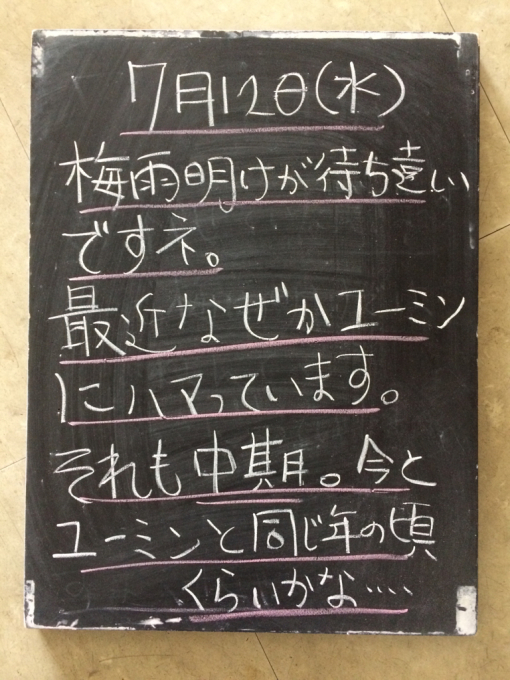 7月12日(水)
梅雨明けが待ち遠しい
ですネ。
最近なぜかユーミン
にハマっています。
それも中期。今と
ユーミンと同じ年の頃
くらいかな‥‥